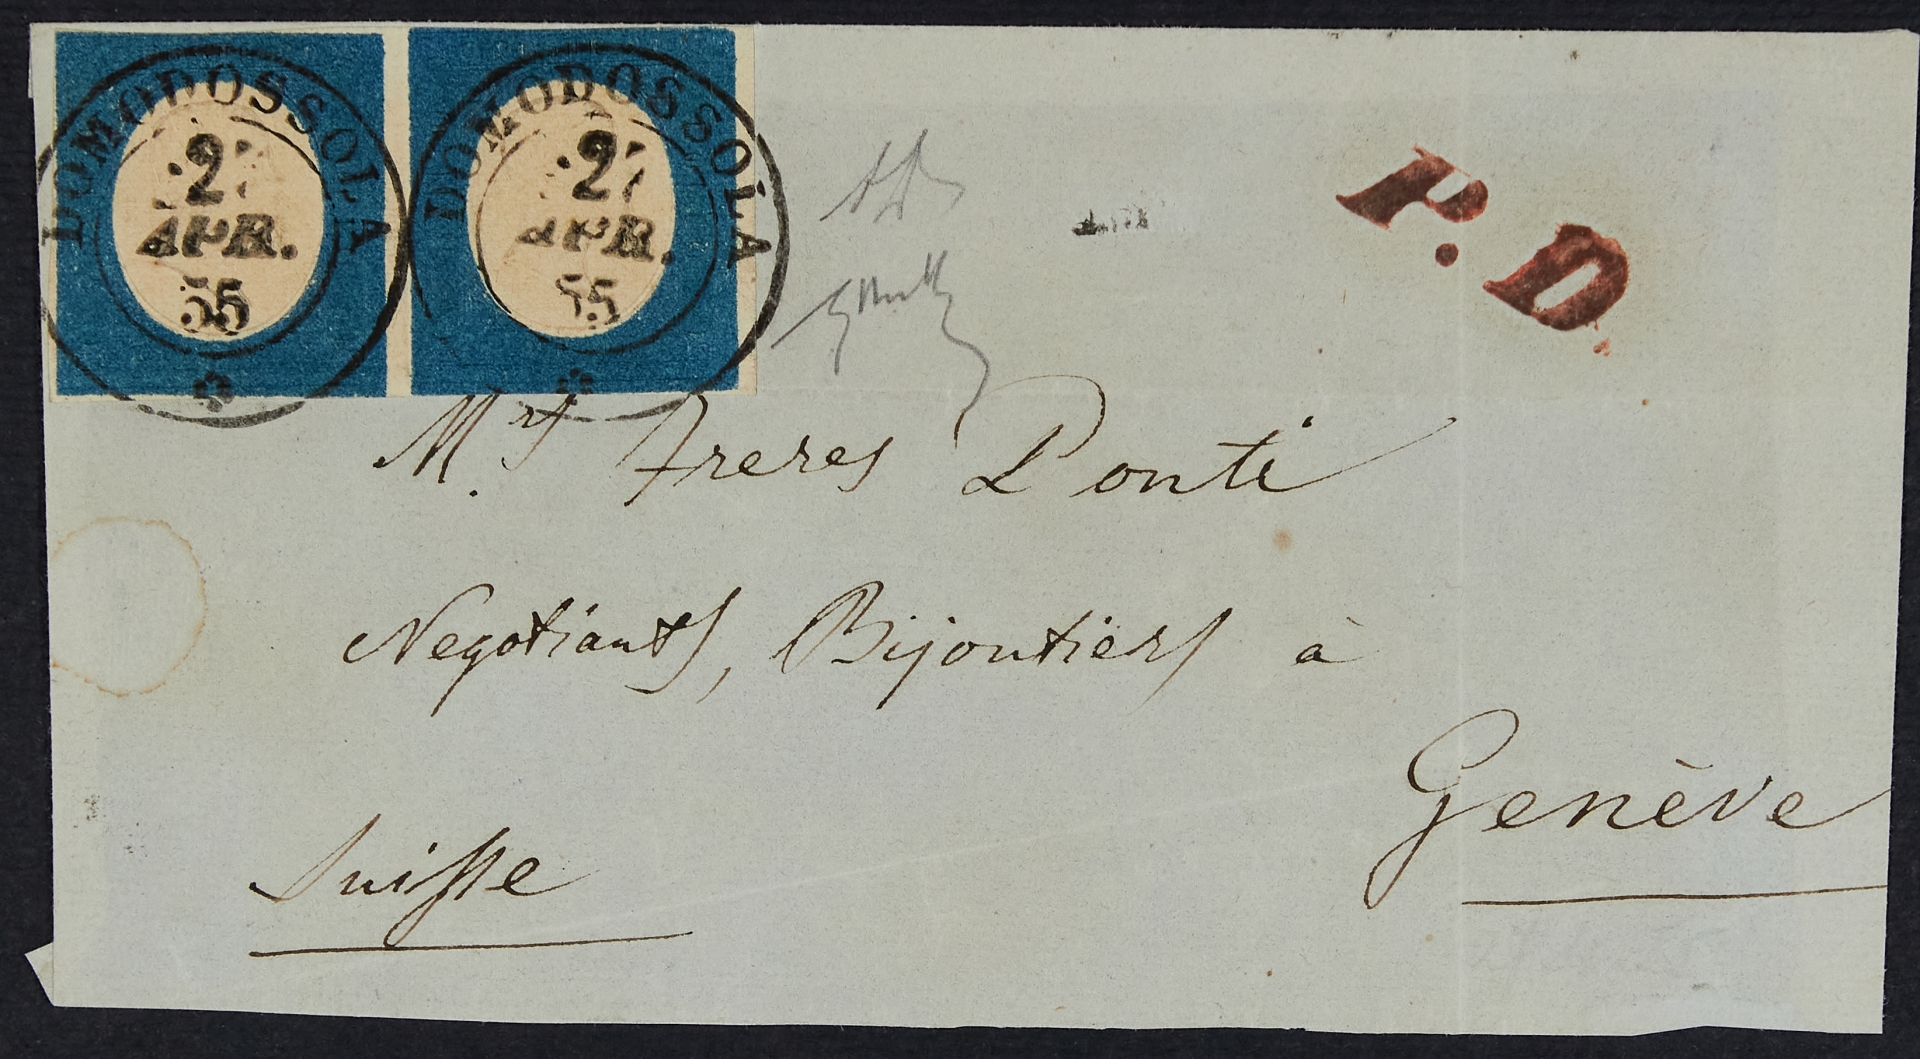 DOMODOSSOLA
27
APR.
55
DOMODOSSOLA
27
APR.
55
P. D.
Mrs Freres Ponti
Negotiants, Bijoutiers à
Genève
Suisse